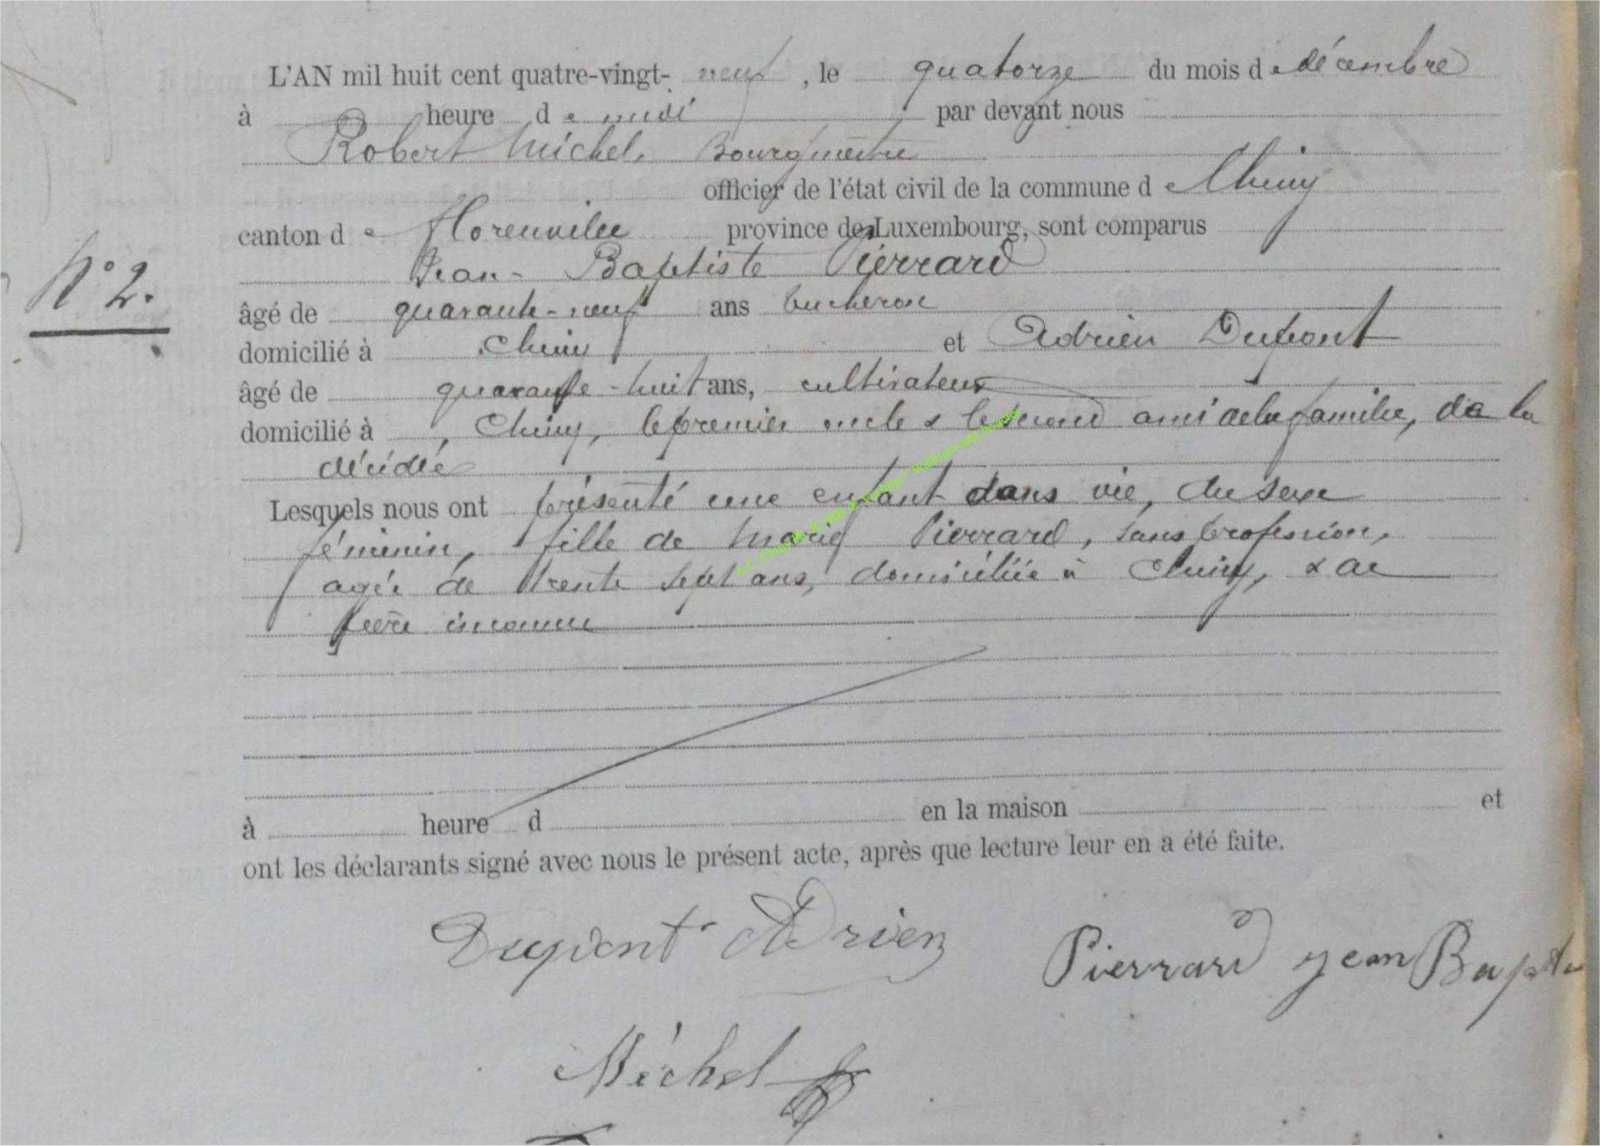 L'AN mil huit cent quatre-vingt- neuf , le quatorze du mois de décembre
à heure de midi par devant nous
Robert Michel, Bourgmestre
officier de l'état civil de la commune de Chiny
canton de Florenville province de Luxembourg, sont comparus
Jean-Baptiste Pierrard
N° 2.
âgé de quarante-neuf ans bucheron
domicilié à Chiny et Adrien Dupont
âgé de quarante-huit ans, cultivateur
domicilié à , Chiny, le premier oncle & le second ami de la famille, de la
décédée
Lesquels nous ont présenté une enfant sans vie, du sexe
féminin, fille de Marie Pierrard, sans profession,
agée de trente sept ans, domiciliée à Chiny, & de
père inconnu
à heure d en la maison et
ont les déclarants signé avec nous le présent acte, après que lecture leur en a été faite.
Dupont Adrien
Pierrard jean Bapte
Michel